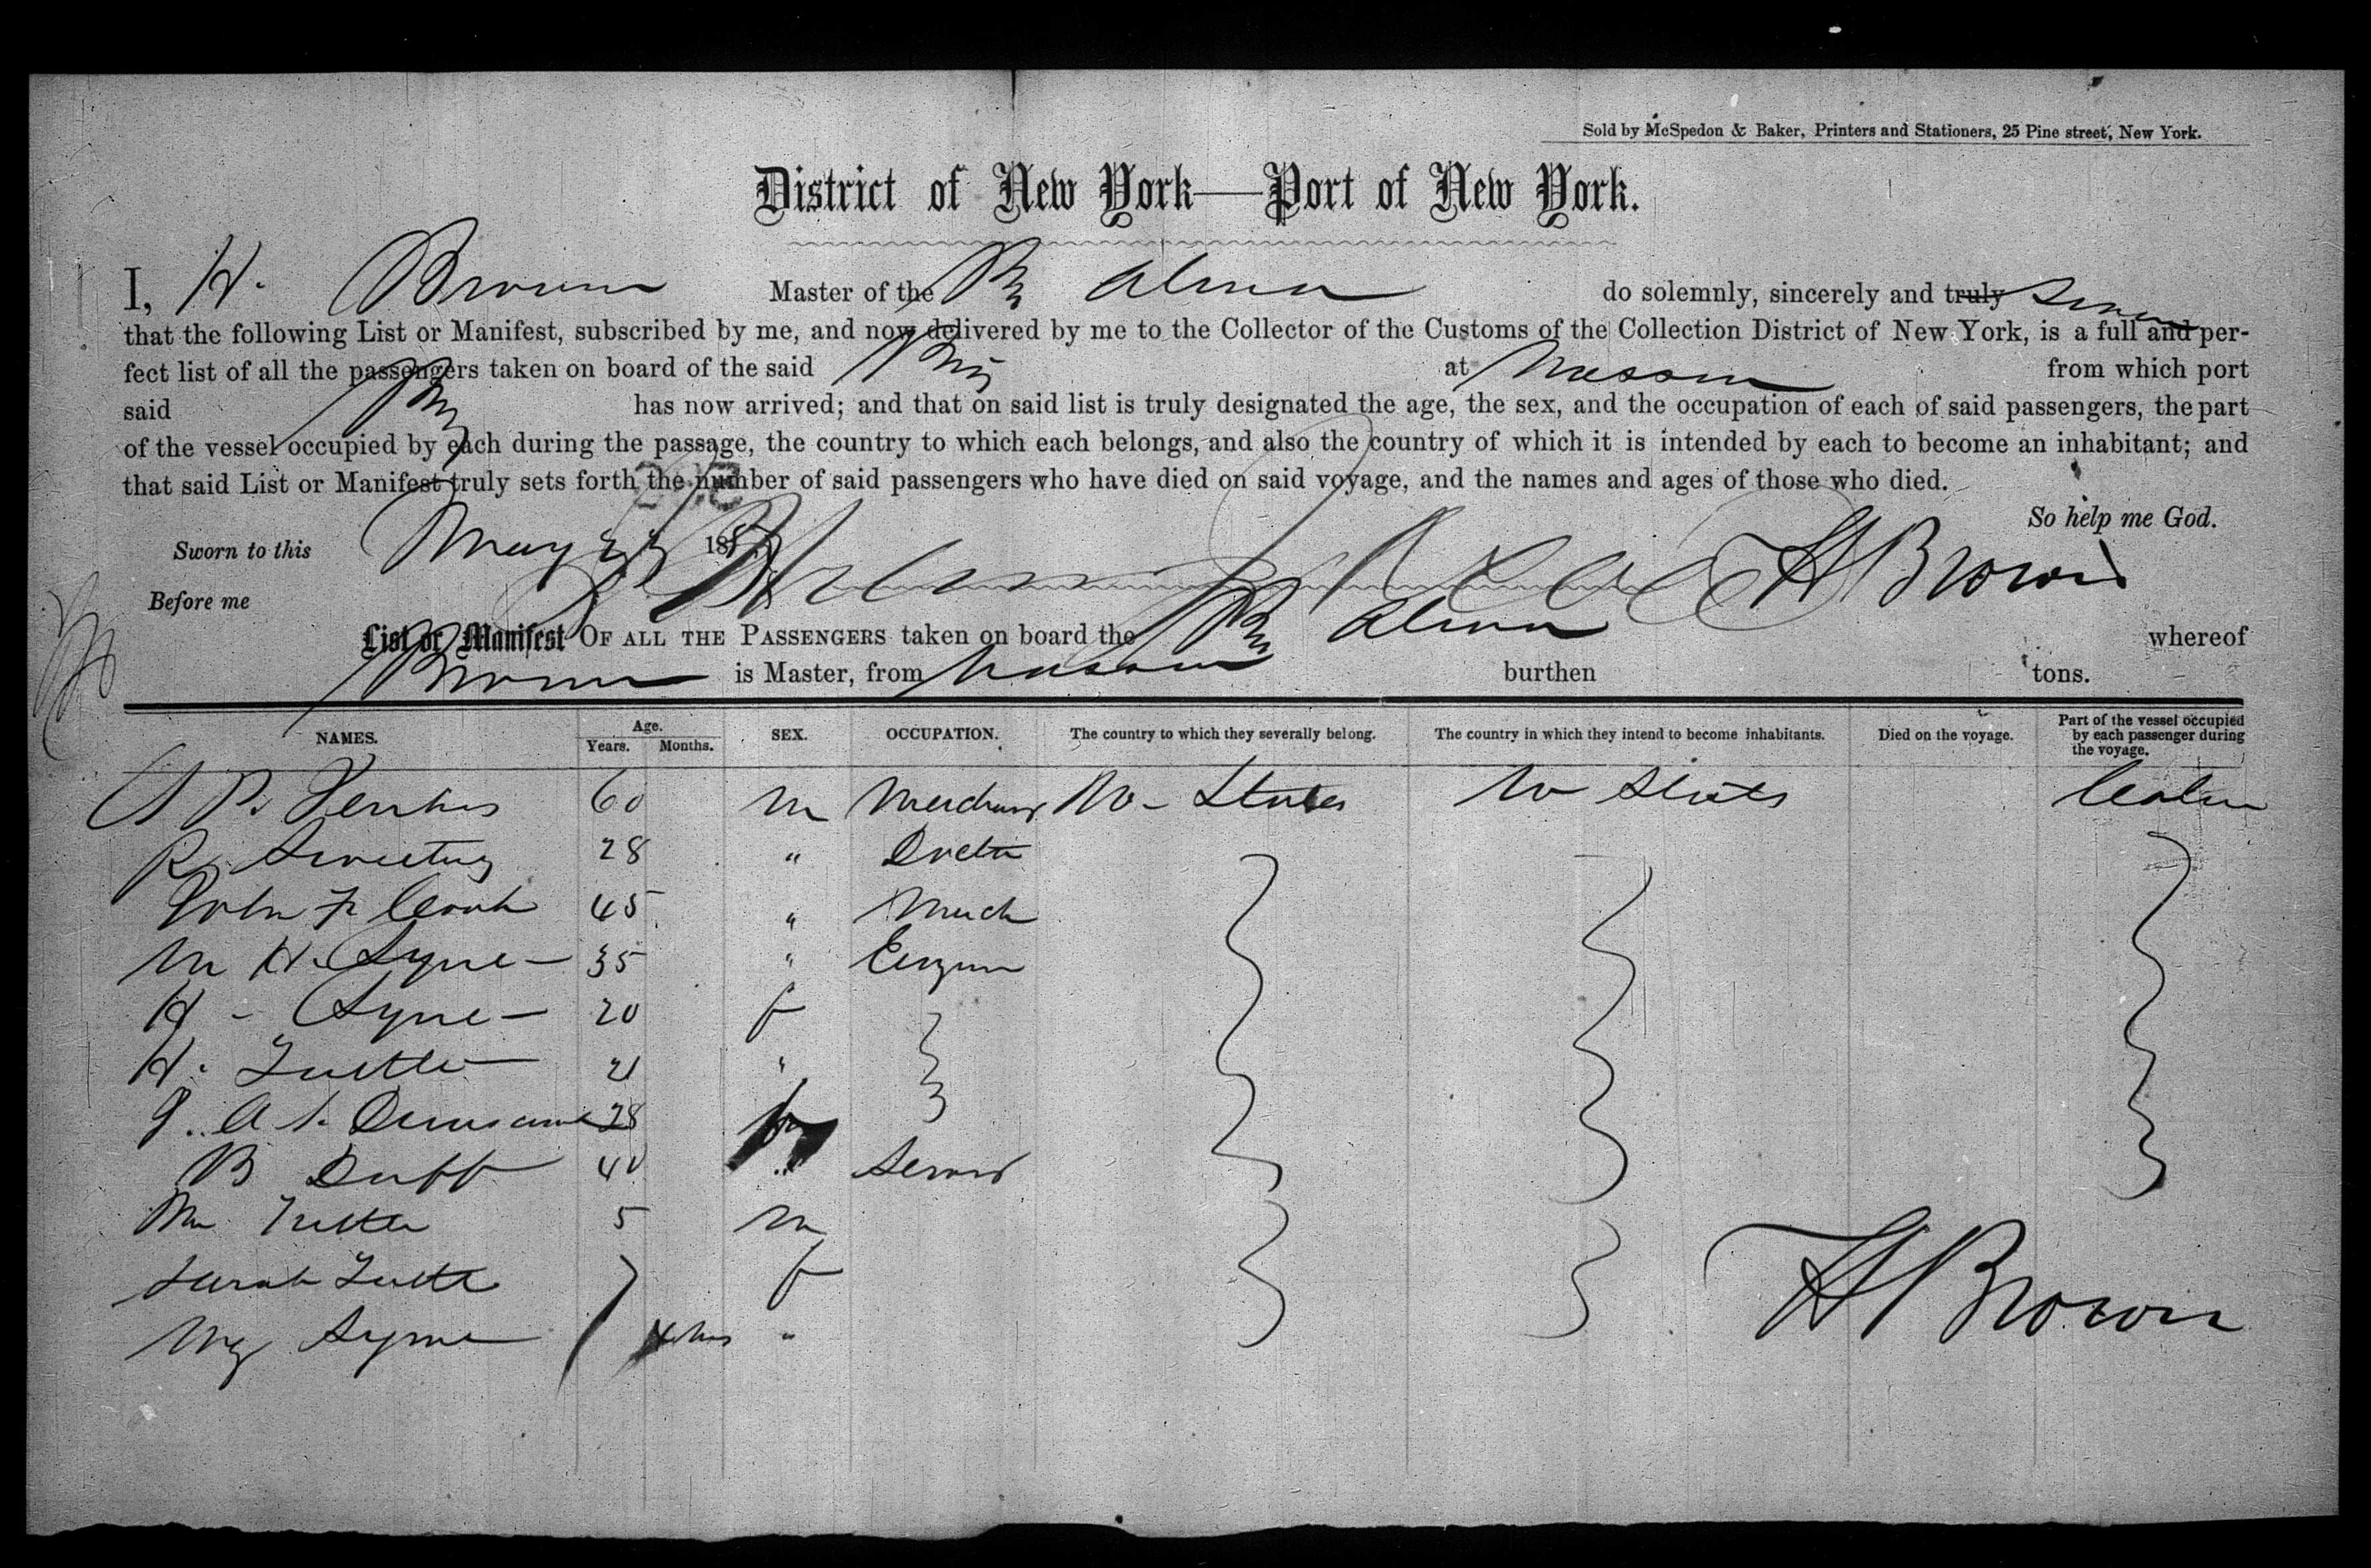 Sold by McSpedon & Baker, Printers and Stationers, 25 Pine street, New York.
District of New York—Port of New York.
I, H. Brown Master of the Brig Alma do solemnly, sincerely and truly swear
that the following List or Manifest, subscribed by me, and now delivered by me to the Collector of the Customs of the Collection District of New York, is a full and per-
fect list of all the passengers taken on board of the said Brig at Nassau from which port
said Brig has now arrived; and that on said list is truly designated the age, the sex, and the occupation of each of said passengers, the part
of the vessel occupied by each during the passage, the country to which each belongs, and also the country of which it is intended by each to become an inhabitant; and
that said List or Manifest truly sets forth the number of said passengers who have died on said voyage, and the names and ages of those who died.
So help me God.
Sworn to this May 185 H Brown
Before me
List or Manifest OF ALL THE PASSENGERS taken on board the Brig Alma whereof
Brown is Master, from Nassau burthen tons.
NAMES. Age. Years. Months. SEX. OCCUPATION. The country to which they severally belong. The country in which they intend to become inhabitants. Died on the voyage. Part of the vessel occupied by each passenger during the voyage.
P. 60 m Merchant States States Cabin
R. 28 " Doctr
John F. Cook 45 " Merch
M H. Syme 35 "
H - Syme 20 f
H. Tuttle 21 "
J. A. 28
B Duff 40 "
Tuttle 5 m
Sarah Tuttle f
Syme 4 "
H Brown